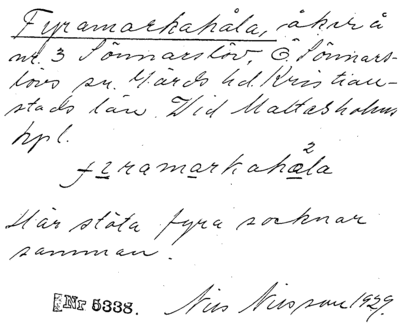 Fyramarkahåla, åker å
nr. 3 Sönnarslöv, Ö. Sönnars-
lövs sn. Gärds hd. Kristian-
stads län. Vid Maltesholms
hpl.
fyramarkahåla
Här stöta fyra socknar
samman.
Nr 5338. Nils Nilsson 1929.